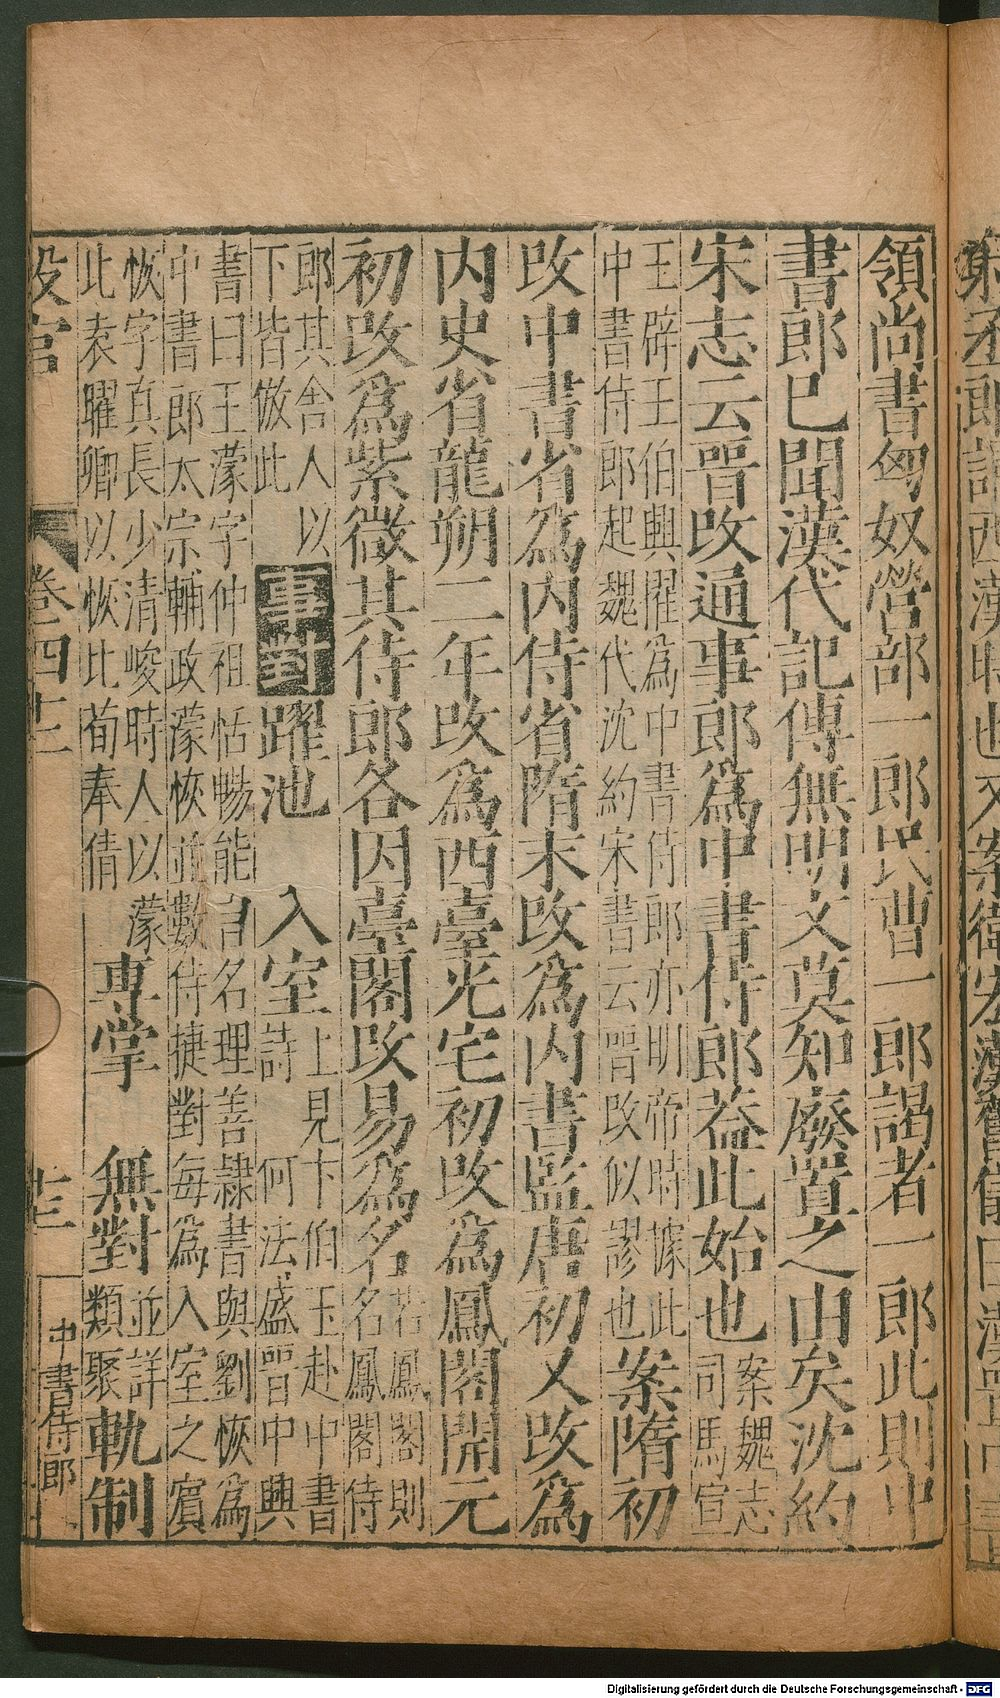 領尚書匈奴營部一郎民曹一郎謁者一郎此則中
書郎已聞漢代記傳無明文莫知廢置之由矣沈約
宋志云晉改通事郎為中書侍郎蓋此始也
案魏志
司馬宣
王辟王伯輿擢為中書侍郎亦明帝時據此
中書侍郎起魏代沈約宋書云晉改似謬也
案隋初
改中書省為內侍省隋末改為內書監唐初又改為
內史省龍朔二年改為西臺光宅初改為鳳閣開元
初改為紫微其侍郎各因臺閣改易為名
若鳳閣則
名鳳閣侍
郎其舍人以
下皆倣此
事對
躍池
入室
上見卞伯玉赴中書
詩 何法盛晉中興
書曰王濛字仲祖恬暢能自名理善隸書與劉恢為
中書郎太宗輔政濛恢並數侍捷對每為入室之賓
恢字真長少清峻時人以濛
比袁曜卿以恢比荀奉倩
專掌
無對
並詳
類聚
軌制
設官
卷四十二
十三
中書侍郎
Digitalisierung gefördert durch die Deutsche Forschungsgemeinschaft - DFG